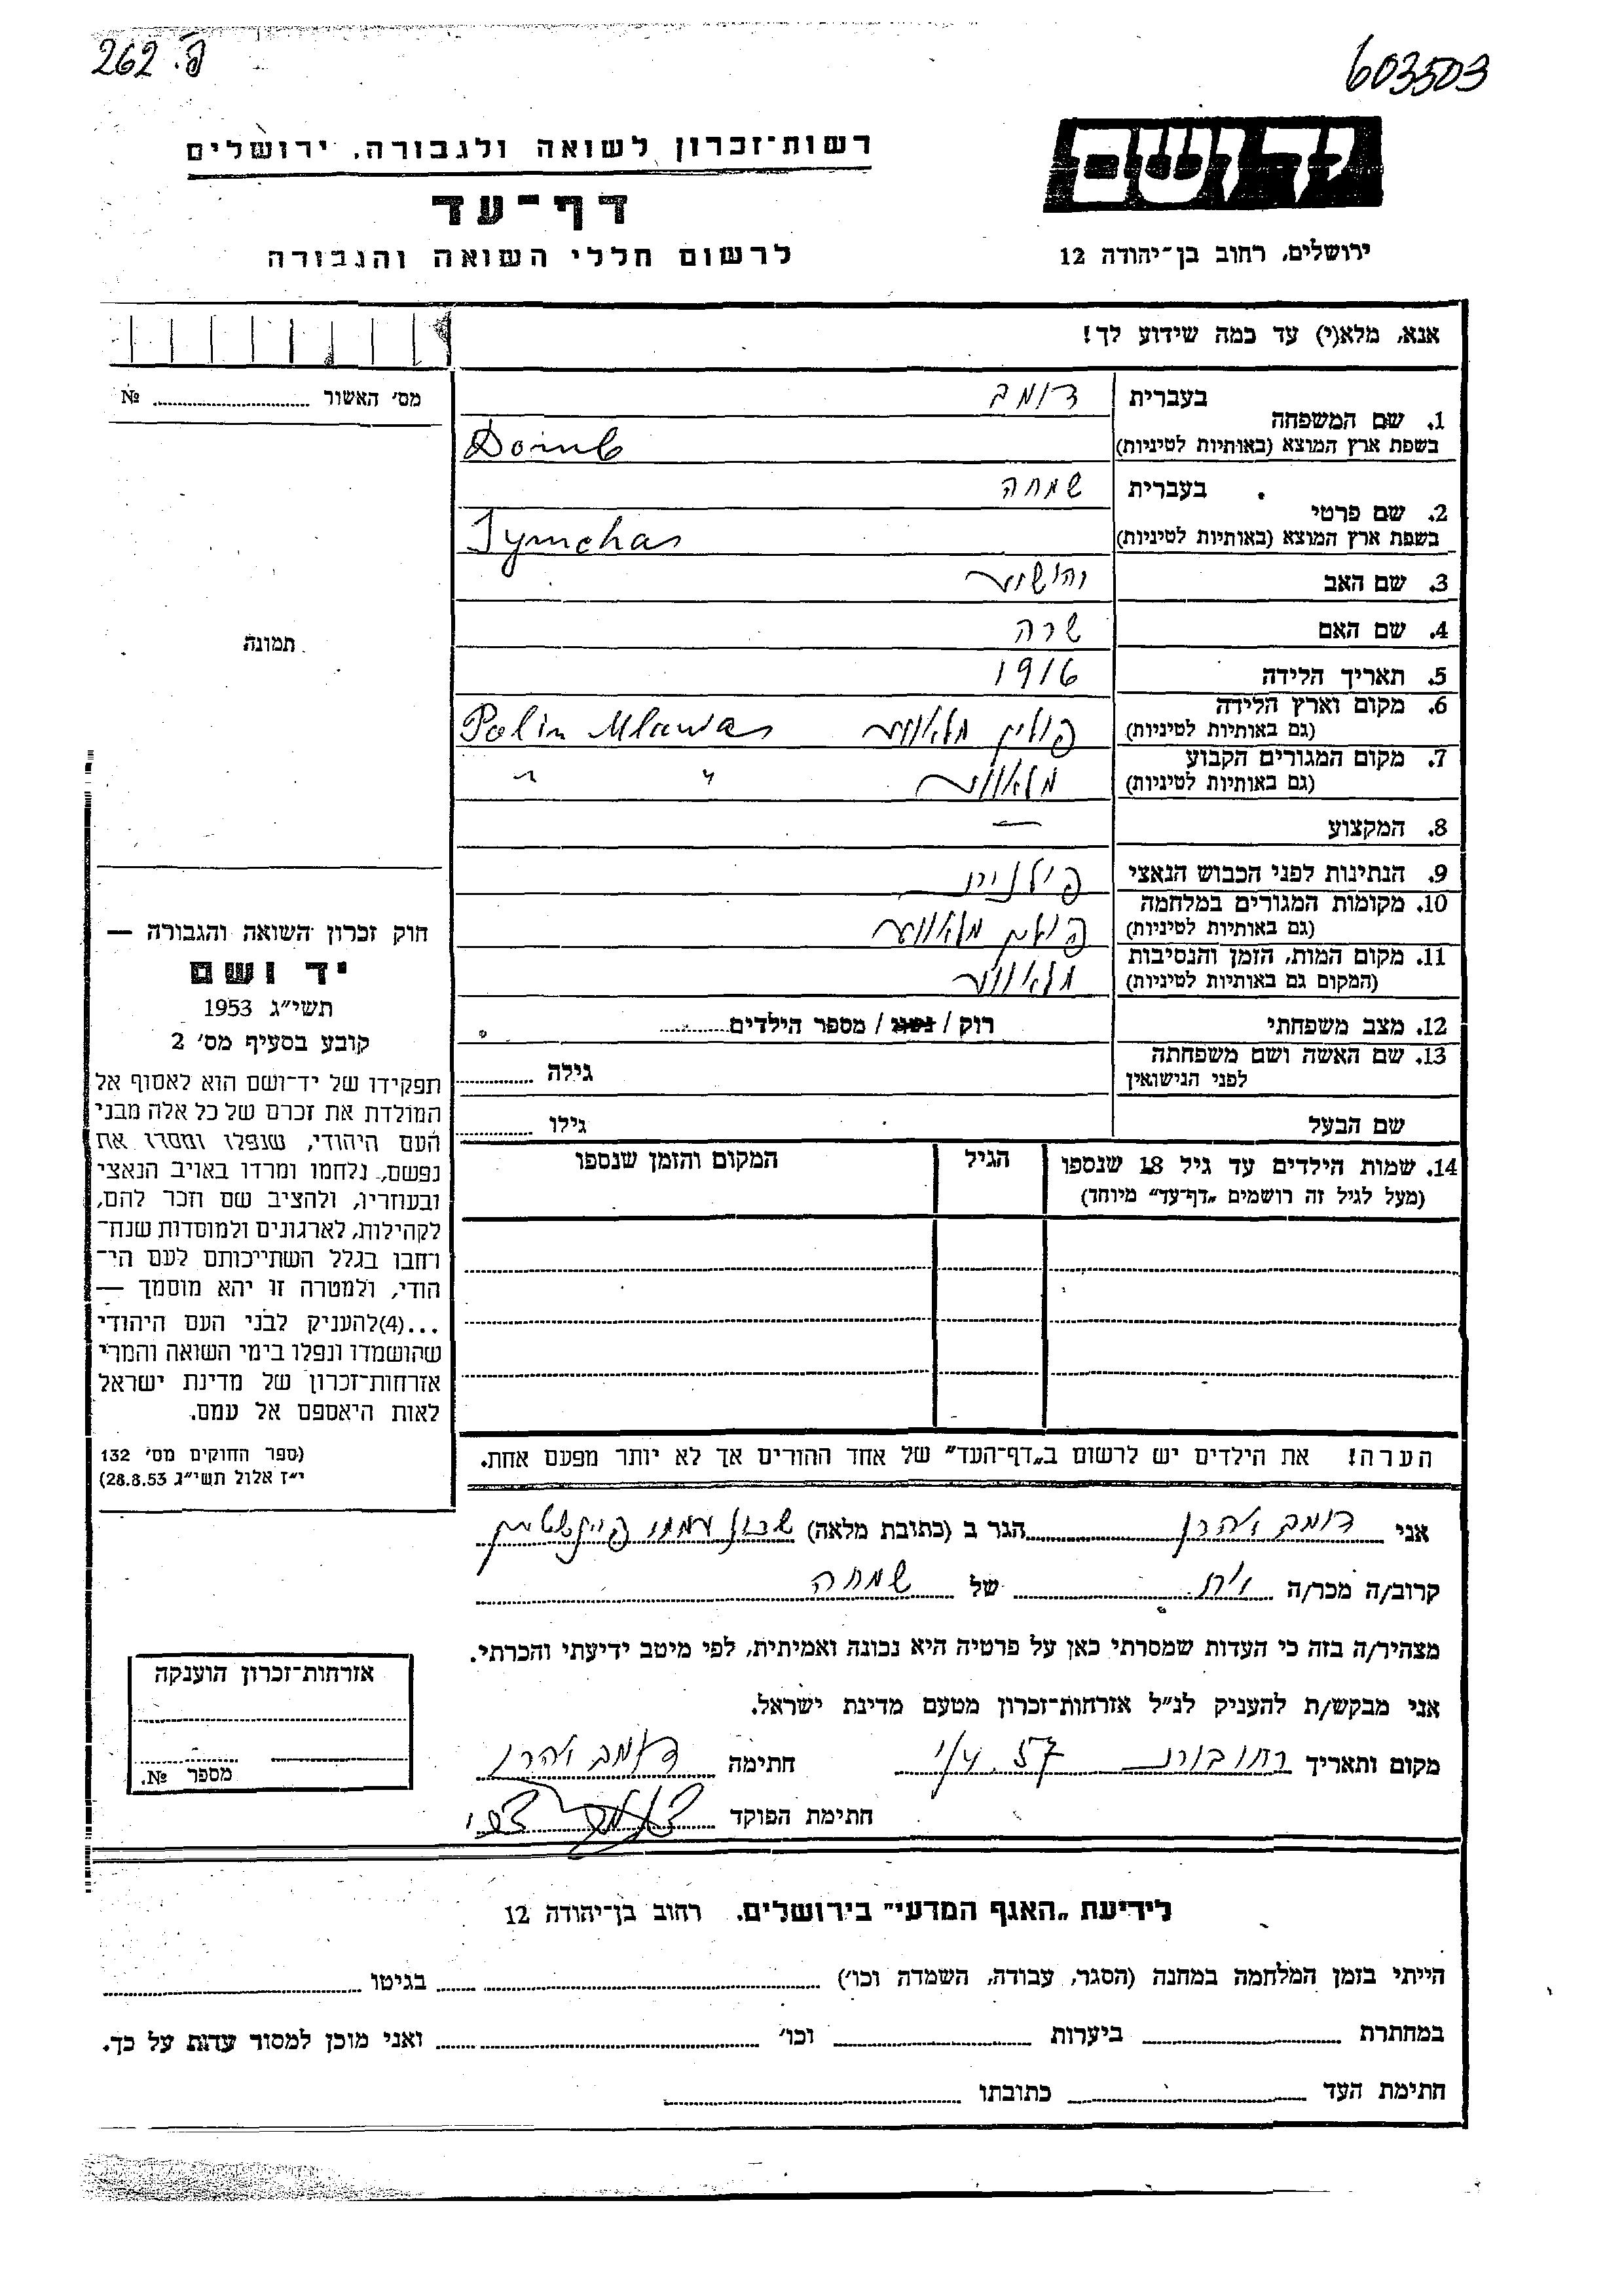 262.ק
603503
יד ושם
רשות־זכרון לשואה ולגבורה, ירושלים
דף־עד
לרשום חללי השואה והגבורה
ירושלים, רחוב בן־יהודה 12
אנא, מלא(י) עד כמה שידוע לך!
מס' האשור № 
1. שם המשפחה בעברית דומב
בשפת ארץ המוצא (באותיות לטיניות) Domb
2. שם פרטי בעברית שמחה
בשפת ארץ המוצא (באותיות לטיניות) Symcha
3. שם האב יהושע
4. שם האם שרה
5. תאריך הלידה 1916
6. מקום וארץ הלידה (גם באותיות לטיניות) פולין מלאווע Polin Mlawa
7. מקום המגורים הקבוע (גם באותיות לטיניות) מלאווע " "
8. המקצוע —
9. הנתינות לפני הכבוש הנאצי
10. מקומות המגורים במלחמה (גם באותיות לטיניות) פולין מלאווע
11. מקום המות, הזמן והנסיבות (המקום גם באותיות לטיניות) מלאווע
12. מצב משפחתי רוק / נשוי / מספר הילדים
13. שם האשה ושם משפחתה לפני הנישואין גילה
שם הבעל גילו
14. שמות הילדים עד גיל 18 שנספו הגיל המקום והזמן שנספו
(מעל לגיל זה רושמים „דף־עד" מיוחד)
תמונה
חוק זכרון השואה והגבורה —
יד ושם
תשי"ג 1953
קובע בסעיף מס' 2
תפקידו של יד־ושם הוא לאסוף אל
המולדת את זכרם של כל אלה מבני
העם היהודי, שנפלו ומסרו את
נפשם, נלחמו ומרדו באויב הנאצי
ובעוזריו, ולהציב שם וזכר להם,
לקהילות, לארגונים ולמוסדות שנח־
רחבו בגלל השתייכותם לעם הי־
הודי, ולמטרה זו יהא מוסמך —
...(4) להעניק לבני העם היהודי
שהושמדו ונפלו בימי השואה והמרי
אזרחות־זכרון של מדינת ישראל
לאות היאספם אל עמם.
(ספר החוקים מס' 132
י"ז אלול תשי"ג 28.8.53)
הערה! את הילדים יש לרשום ב„דף־העד" של אחד ההורים אך לא יותר מפעם אחת.
אני דומב אהרן הגר ב (כתובת מלאה) שכון עממי
קרוב/ה מכר/ה אח של שמחה
מצהיר/ה בזה כי העדות שמסרתי כאן על פרטיה היא נכונה ואמיתית, לפי מיטב ידיעתי והכרתי.
אני מבקש/ת להעניק לנ"ל אזרחות־זכרון מטעם מדינת ישראל.
מקום ותאריך רחובות חתימה דומב אהרן
חתימת הפוקד
אזרחות־זכרון הוענקה
מספר №.
לידיעת „האגף המדעי" בירושלים. רחוב בן־יהודה 12
הייתי בזמן המלחמה במחנה (הסגר, עבודה, השמדה וכו') בגיטו
במחתרת ביערות וכו' ואני מוכן למסור עדות על כך.
חתימת העד כתובתו